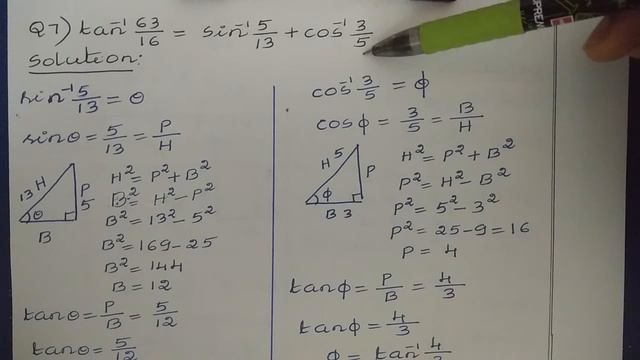 Q7) tan⁻¹ 63/16 = sin⁻¹ 5/13 + cos⁻¹ 3/5
Solution:
sin⁻¹ 5/13 = θ
sinθ = 5/13 = P/H
13 H
P
5
θ
B
H² = P² + B²
B² = H² − P²
B² = 13² − 5²
B² = 169 − 25
B² = 144
B = 12
tanθ = P/B = 5/12
tanθ = 5/12
cos⁻¹ 3/5 = ϕ
cosϕ = 3/5 = B/H
H 5
P
ϕ
B 3
H² = P² + B²
P² = H² − B²
P² = 5² − 3²
P² = 25 − 9 = 16
P = 4
tanϕ = P/B = 4/3
tanϕ = 4/3
ϕ = tan⁻¹ 4/3